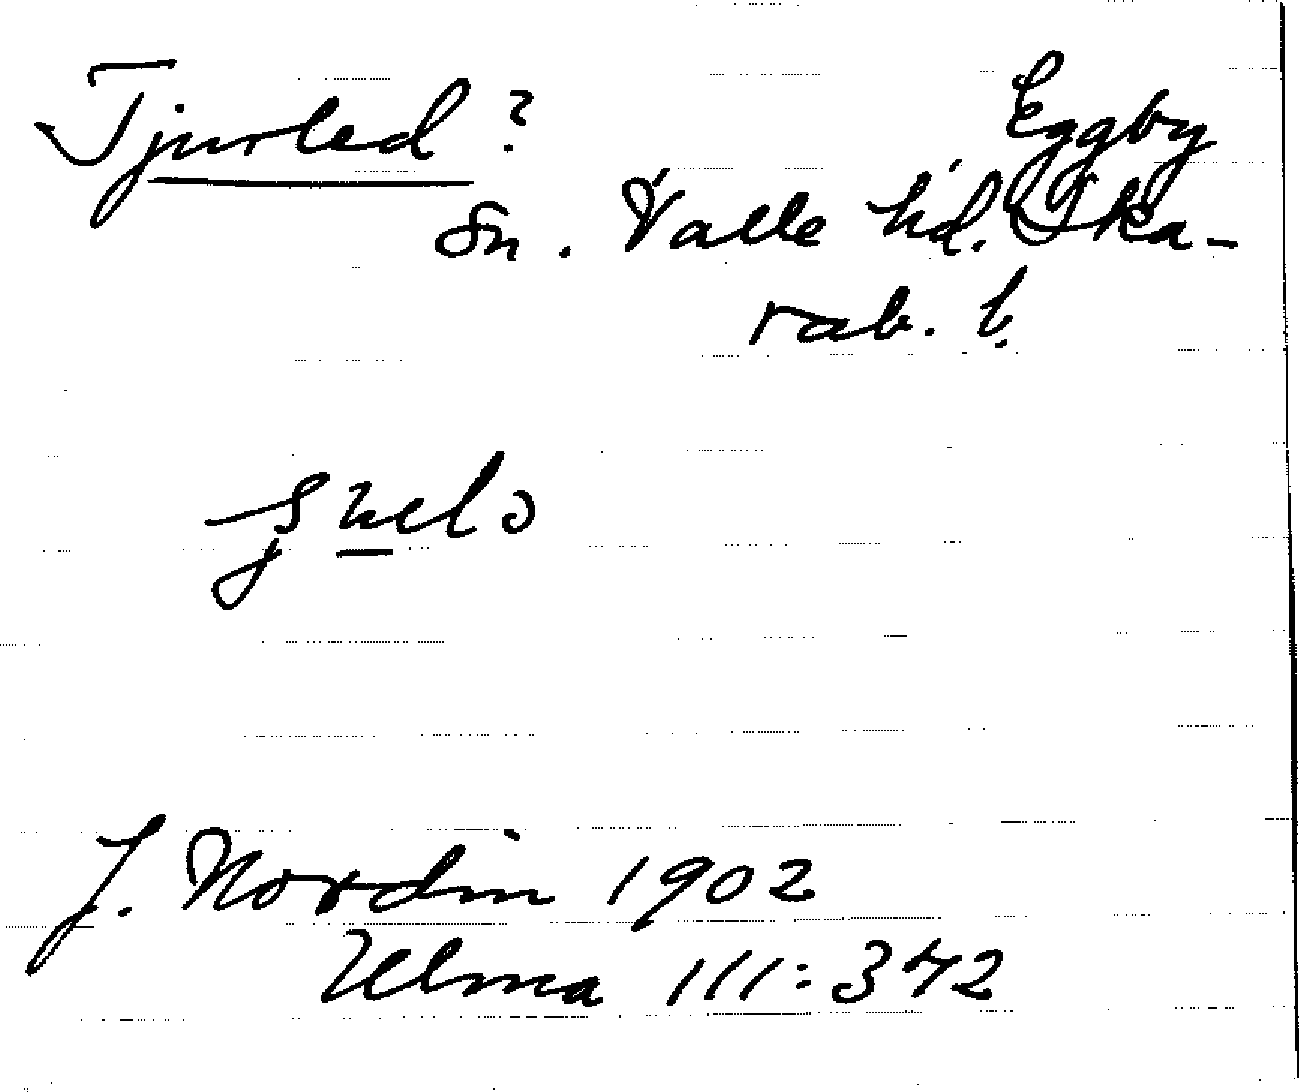 Tjurled ?
Eggby
sn. Valle hd. Ska-
rab. l.
J. Nordin 1902
Ulma 111:342